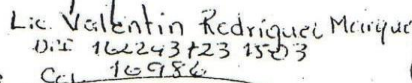 Lic. Valentin Rodriguez Marque
DUI 162243723 1503
Col 10986